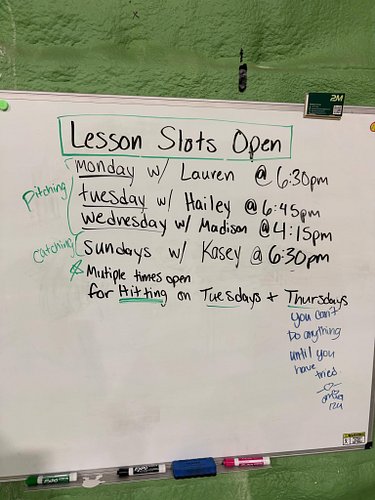 Lesson Slots Open
Pitching
monday w/ Lauren @ 6:30pm
tuesday w/ Hailey @ 6:45pm
wednesday w/ Madison @ 4:15pm
catching
Sundays w/ Kasey @ 6:30pm
Multiple times open
for Hitting on Tuesdays + Thursdays
you can't
Do anything
until you
have tried.
12u
2M
EXPO